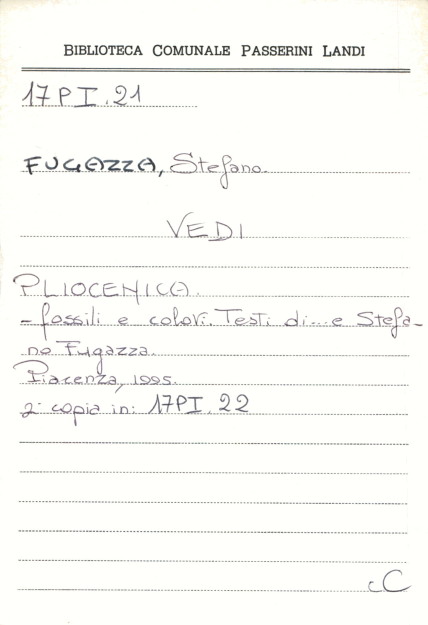 BIBLIOTECA COMUNALE PASSERINI LANDI
17PI.21
FUGAZZA, Stefano.
VEDI
PLIOCENICA.
- fossili e colori. Testi di... e Stefa-
no Fugazza.
Piacenza, 1995.
2ª copia in: 17PI.22
cC